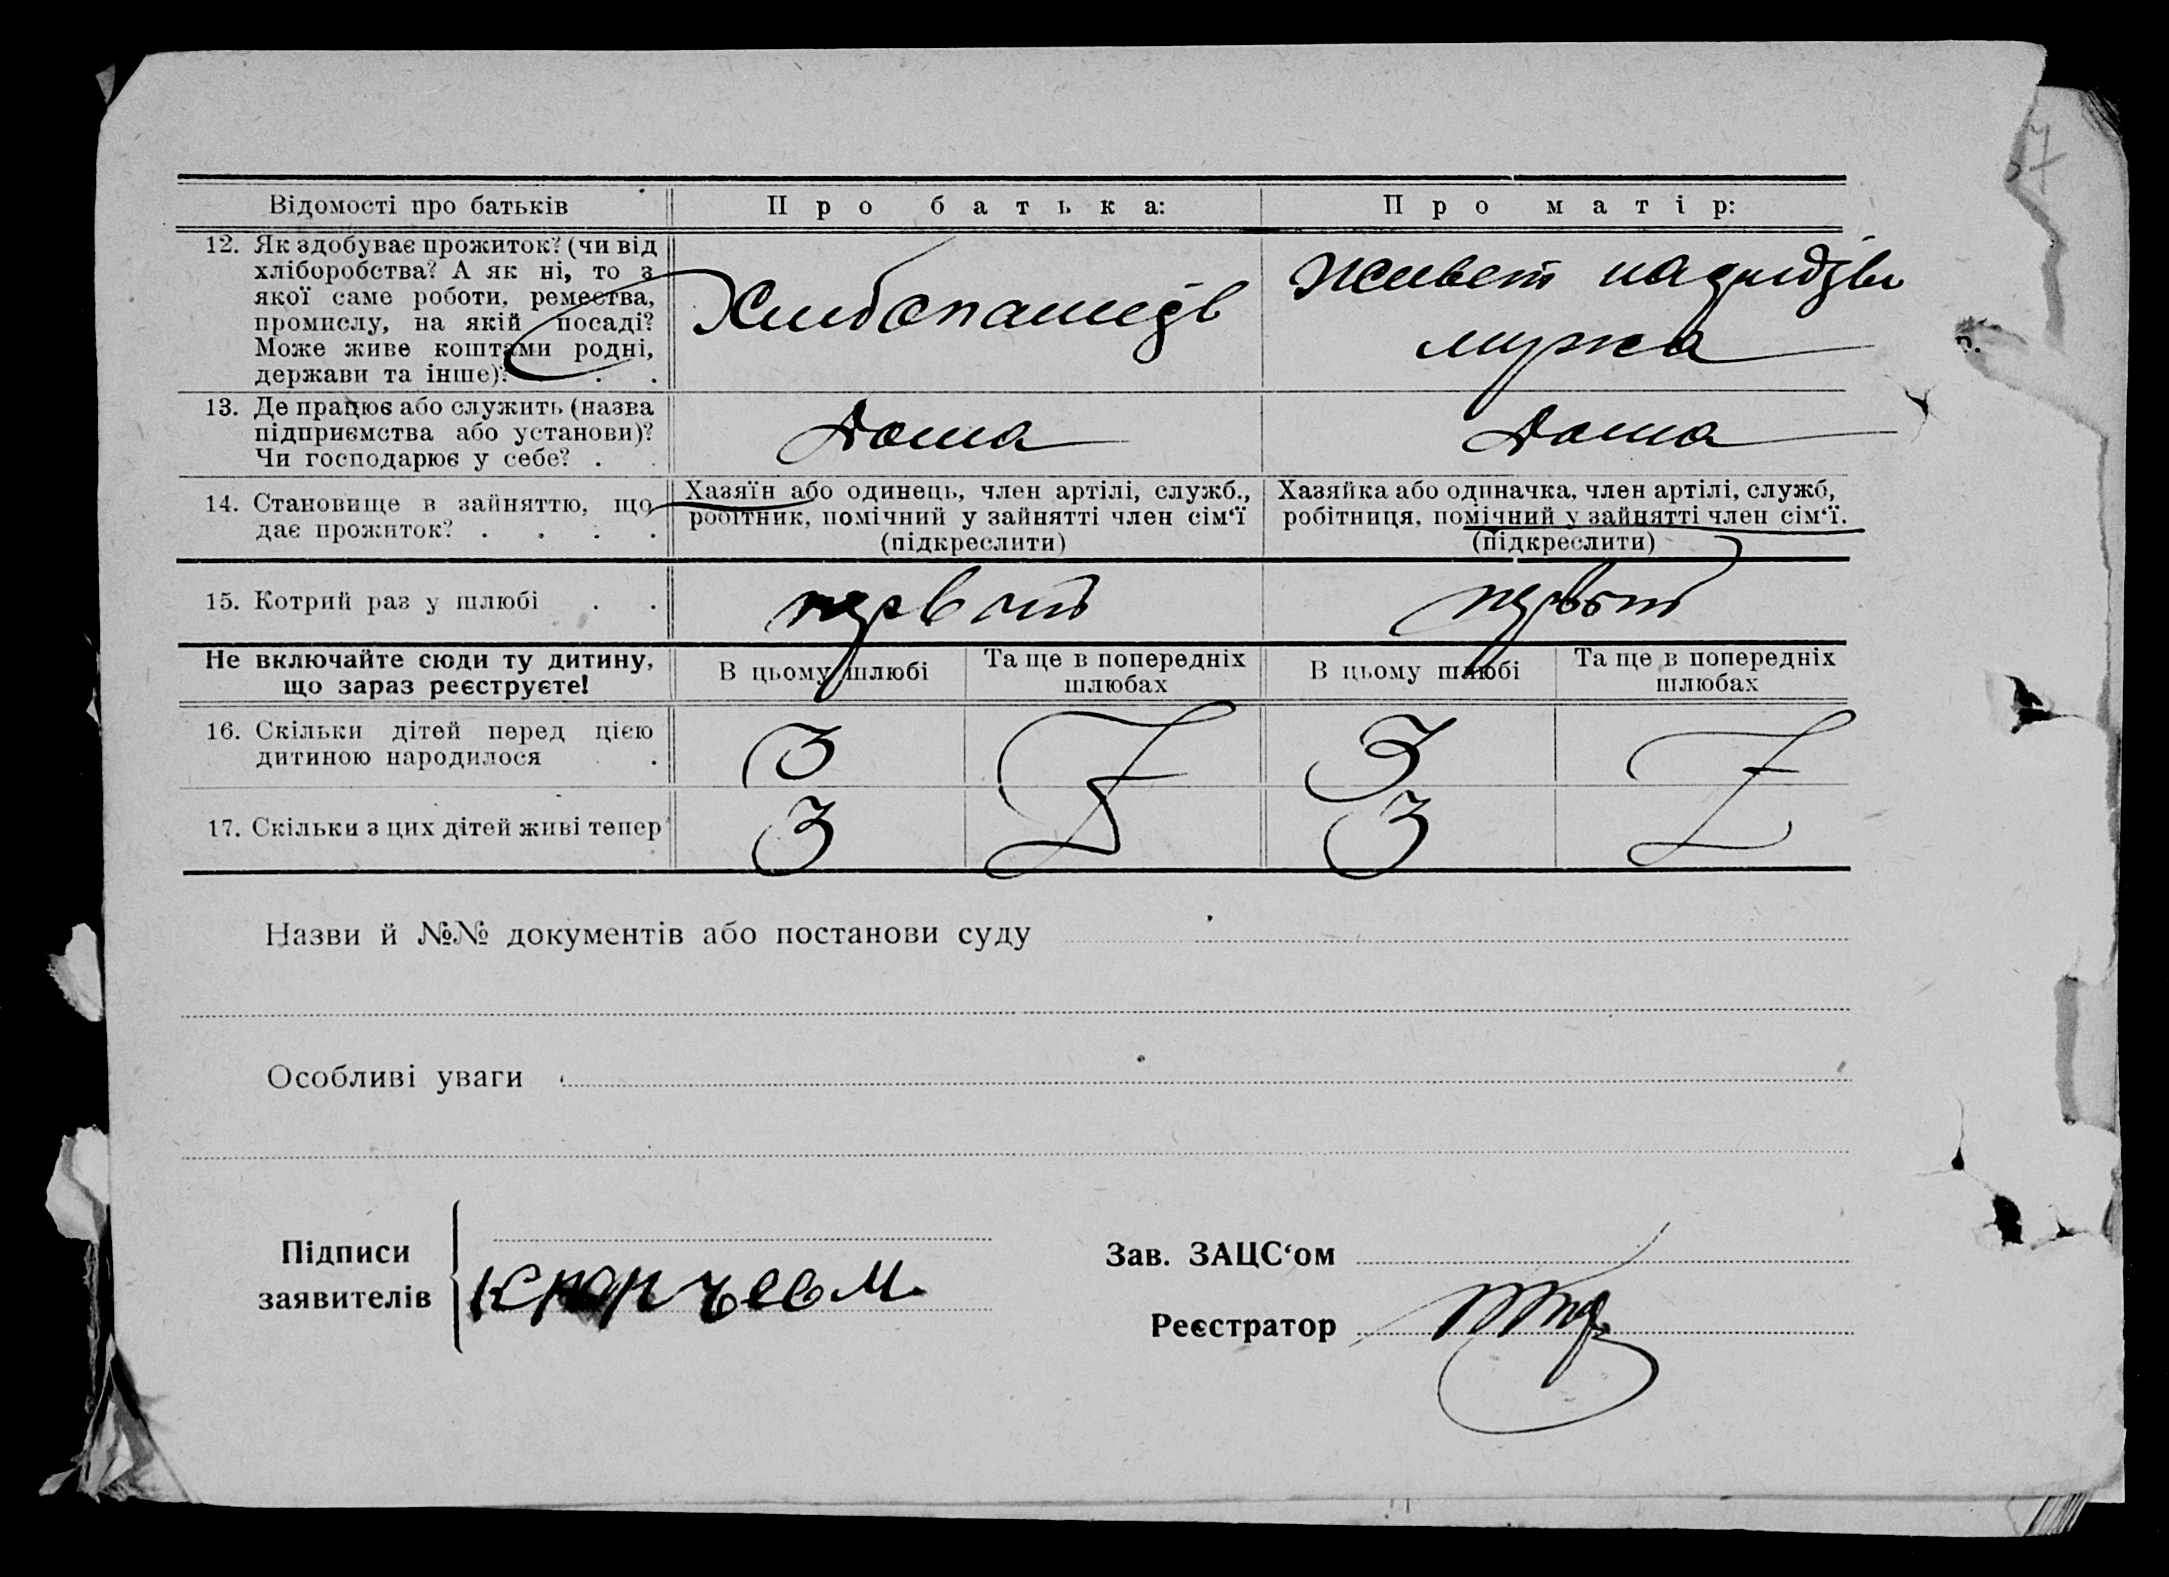 Відомості про батьків
Про батька:
Про матір:
12. Як здобуває прожиток? (чи від
хліборобства? А як ні, то з
якої саме роботи, ремества,
промислу, на якій посаді?
Може живе коштами родні,
держави та інше)? . .
Живет
мужа
13. Де працює або служить (назва
підприємства або установи)?
Чи господарює у себе? .
Дома
Дома
14. Становище в зайняттю, що
дає прожиток? . . . .
Хазяїн або одинець, член артілі, служб.,
робітник, помічний у зайнятті член сім‘ї
(підкреслити)
Хазяйка або одиначка, член артілі, служб,
робітниця, помічний у зайнятті член сім‘ї.
(підкреслити)
15. Котрий раз у шлюбі . .
первий
первый
Не включайте сюди ту дитину,
що зараз реєструєте!
В цьому шлюбі
Та ще в попередніх
шлюбах
В цьому шлюбі
Та ще в попередніх
шлюбах
16. Скільки дітей перед цією
дитиною народилося .
3
3
17. Скільки з цих дітей живі тепер
3
3
Назви й №№ документів або постанови суду
Особливі уваги
Підписи
заявителів
Зав. ЗАЦС‘ом
Реєстратор